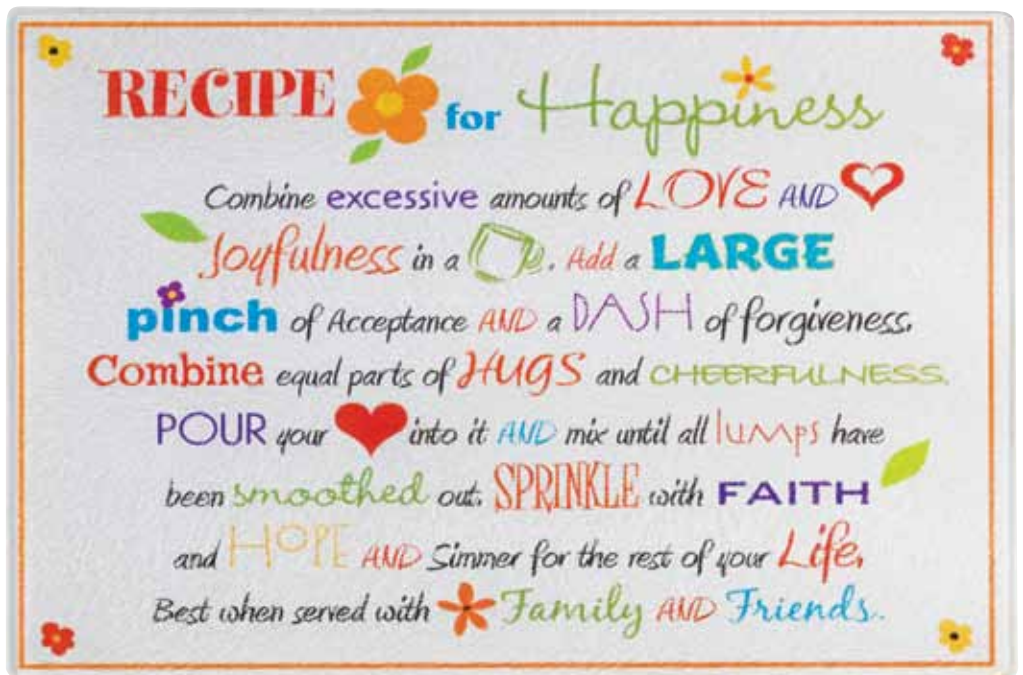 RECIPE for Happiness
Combine excessive amounts of LOVE AND
Joyfulness in a . Add a LARGE
pinch of Acceptance AND a DASH of forgiveness.
Combine equal parts of HUGS and CHEERFULNESS.
POUR your into it AND mix until all lumps have
been smoothed out. SPRINKLE with FAITH
and HOPE AND Simmer for the rest of your Life.
Best when served with Family AND Friends.